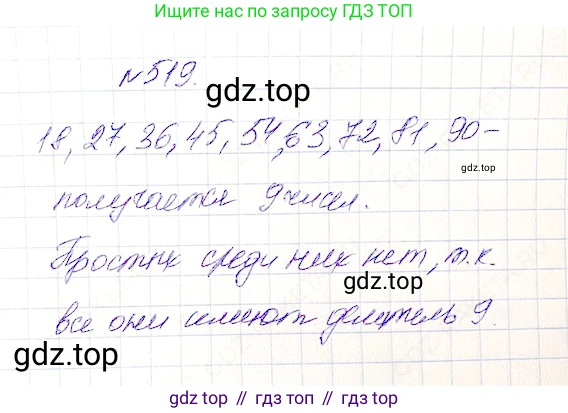 Ищите нас по запросу ГДЗ ТОП
№519.
gdz.top
18, 27, 36, 45, 54, 63, 72, 81, 90 -
gdz.top
получается 9 чисел.
Простых среди них нет, т.к.
gdz.top
все они имеют делитель 9.
gdz.top
gdz top // гдз топ // гдз.топ